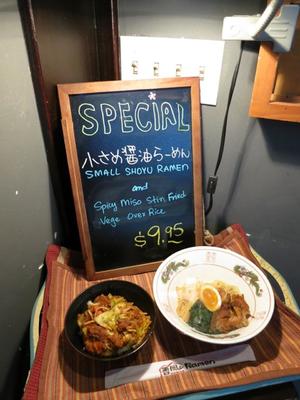 SPECIAL
小さめ醤油らーめん
SMALL SHOYU RAMEN
and
Spicy Miso Stir Fried
Vege Over Rice
$9.95
Ramen